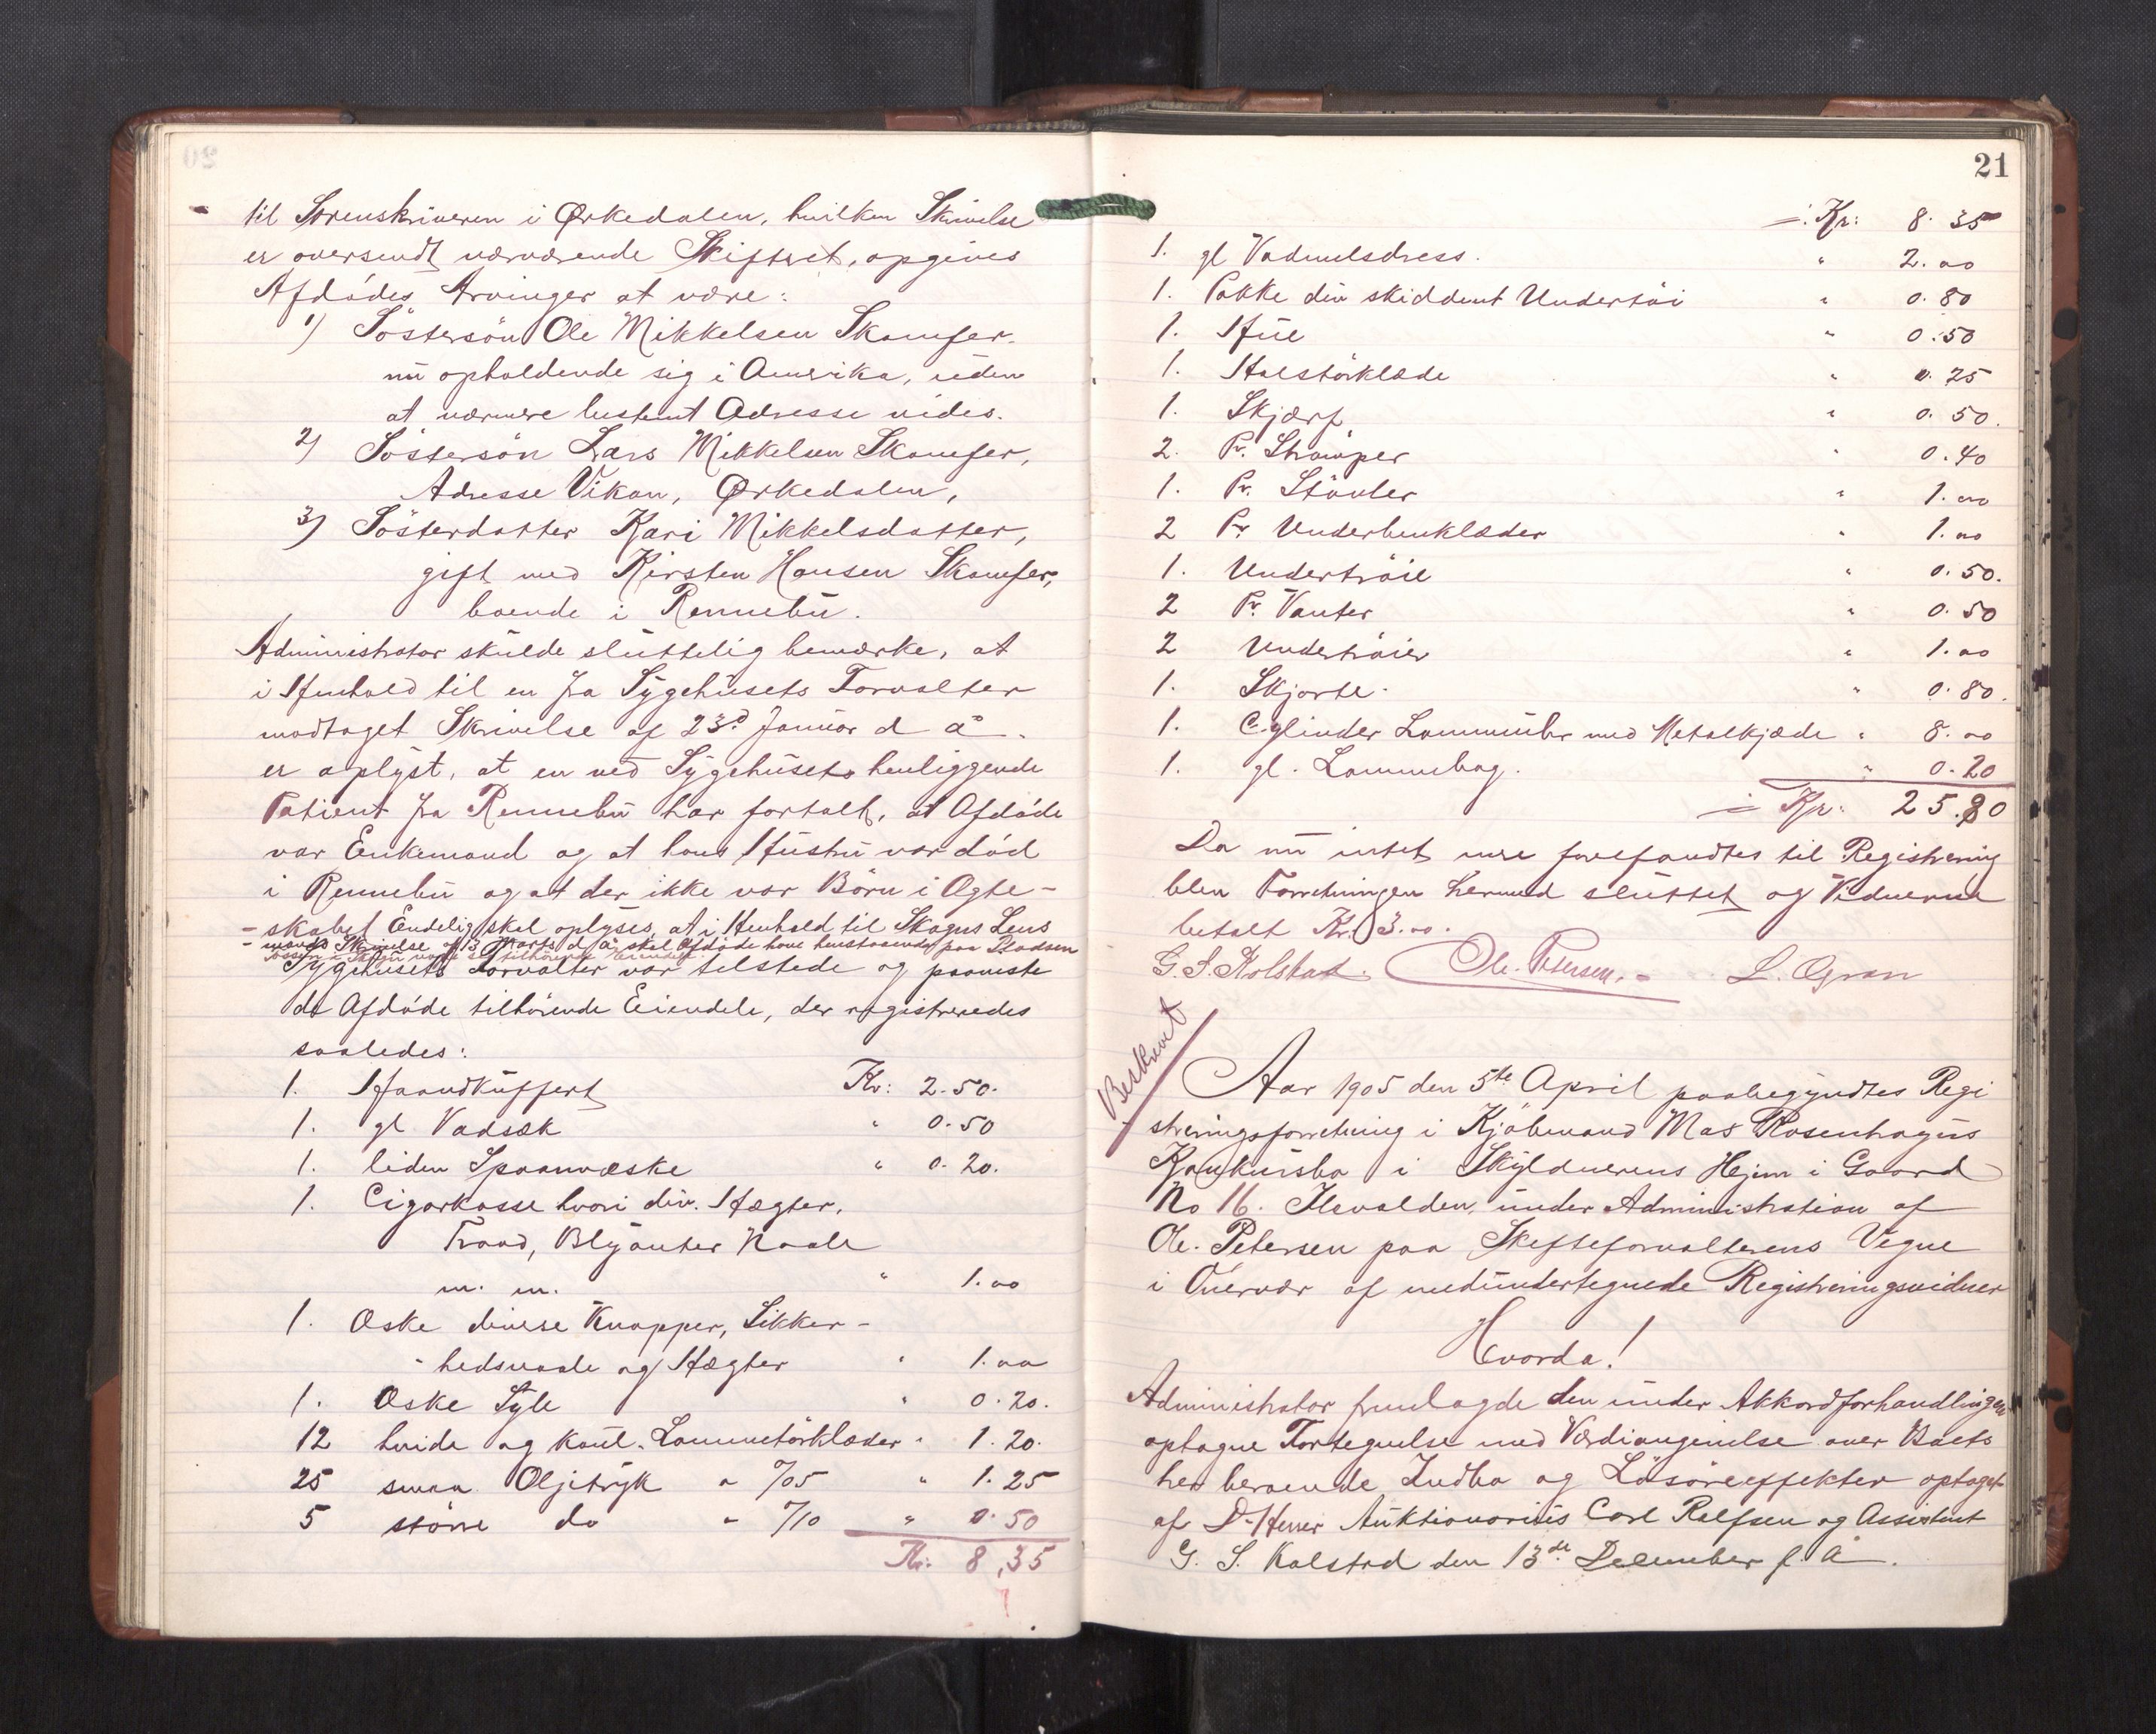 til Sorenskriveren i Ørkedalen, hvilken Skrivelse
er oversendt nærværende Skifteret, opgives
Afdødes Arvinger at være:
1) Söstersön Ole Mikkelsen Skamfer.
nu opholdende sig i Amerika, uden
at nærmere bestemt Adresse vides.
2) Söstersön Lars Mikkelsen Skamfer,
Adresse Vikan, Ørkedalen,
3) Sösterdatter Kari Mikkelsdatter,
gift med Kirsten Hansen Skamfer,
boende i Rennebu.
Administrator skulde sluttelig bemærke, at
i Henhold til en fra Sygehusets Forvalter
modtaget Skrivelse af 23d Januar d a
er oplyst, at en ved Sygehuset henliggende
Patient fra Rennebu har fortalt, at Afdøde
var Enkemand og at hans Hustru var död
i Rennebu og at der ikke var Börn i Ægte-
-skabet Endelig skal oplyses, at i Henhold til Skogns Lens
-mands Skrivelse af 13 Marts d a skal Afdøde have henstaaende paa Pladsen
i Skogn
Sygehusets Forvalter var tilstede og paaviste
de Afdøde tilhörende Eiendele, der registreredes
saaledes:
1. Haandkuffert Kr: 2.50.
1. gl Vadsæk " 0.50
1. liden Spaanvæske " 0.20.
1. Cigarkasse hvori div. Hægter,
Traad, Blyanter Naale
m. m. " 1.00
1. Æske diverse Knapper, Sikker-
-hedsnaale og Hægter " 1.00
1. Æske Syle " 0.20.
12 hvide og koul. Lommetörklæder " 1.20.
25 smaa Oljetryk a %05 " 1.25
5 större do - %10 " 0.50
Kr: 8,35
21
Kr: 8.35
1. gl Vadmelsdress. " 2.00
1. Pakke div skiddent Undertöi " 0.80
1. Hue " 0.50
1. Halstörklæde " 0.25
1. Skjærf " 0.50.
2. Pr. Strömper " 0.40
1. Pr. Stövler " 1.00
2 Pr Underbenklæder " 1.00
1. Undertröie " 0.50.
2 Pr. Vanter " 0.50
2 Undertröier " 1.00
1. Skjorte. " 0.80.
1. Cylinder Lommeuhr med Metalkjæde " 8.00
1. gl. Lommebog. " 0.20
Kr: 25.80
Da nu intet mere forefandtes til Registrering
blev Forretningen hermed sluttet og Vidnerne
betalt Kr. 3.00.
G. S. Kolstad. Ole. Petersen.- L. Ogran
Beskrevet
Aar 1905 den 5te April paabegyndtes Regi
streringsforretning i Kjöbmand Mas Rosenhagüs
Konkursbo i Skyldnerens Hejm i Gaard
No 16. Ilevolden, under Administration af
Ole. Petersen paa Skifteforvalterens Vegne
i Overvær af medundertegnede Registreringsvidner
Hvorda!
Administrator fremlagde den under Akkordforhandlingen
optagne Fortegnelse med Værdiangivelse over Boets
her beroende Indbo og Lösöreeffekter optaget
af D-Herrer Auktionarius Carl Rolfsen og Assistent
G. S. Kolstad den 13de December f. A.